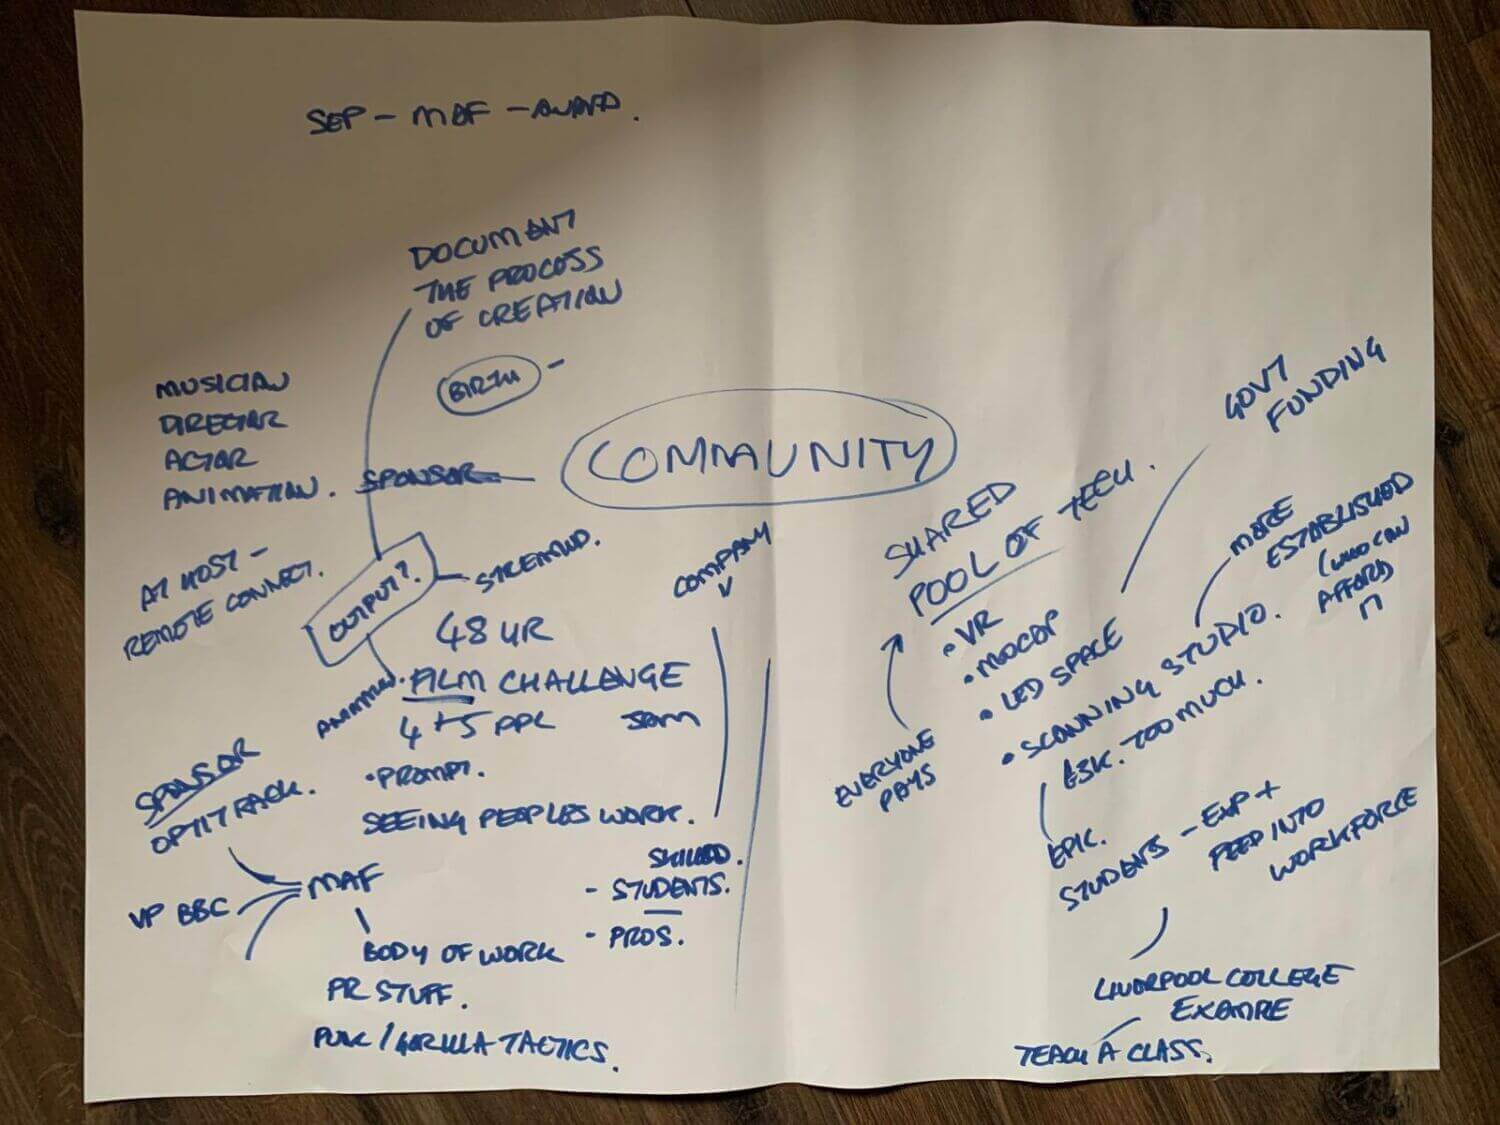 SEP - MAF - AWARD.
DOCUMENT
THE PROCESS
OF CREATION
BIRTH -
MUSICIAN
DIRECTOR
ACTOR
ANIMATION.
SPONSOR
COMMUNITY
AT HOST -
REMOTE CONNECT.
OUTPUT?
STREAMED.
48 HR
FILM CHALLENGE
4 + 5 PPL JAM
• PROMPT.
SEEING PEOPLES WORK.
COMPANY
SKILLED.
- STUDENTS.
- PROS.
SPONSOR
OPTITRACK.
VP BBC
MAF
BODY OF WORK
PR STUFF.
PUNK / GORILLA TACTICS.
SHARED
POOL OF TECH.
• VR
• MOCAP
• LED SPACE
• SCANNING STUDIO.
£3K. TOO MUCH.
EVERYONE
PAYS
GOVT
FUNDING
MORE
ESTABLISHED
(WHO CAN
AFFORD
EPIC.
STUDENTS - EXP +
FEED INTO
WORKFORCE
LIVERPOOL COLLEGE
EXAMPLE
TEACH A CLASS.